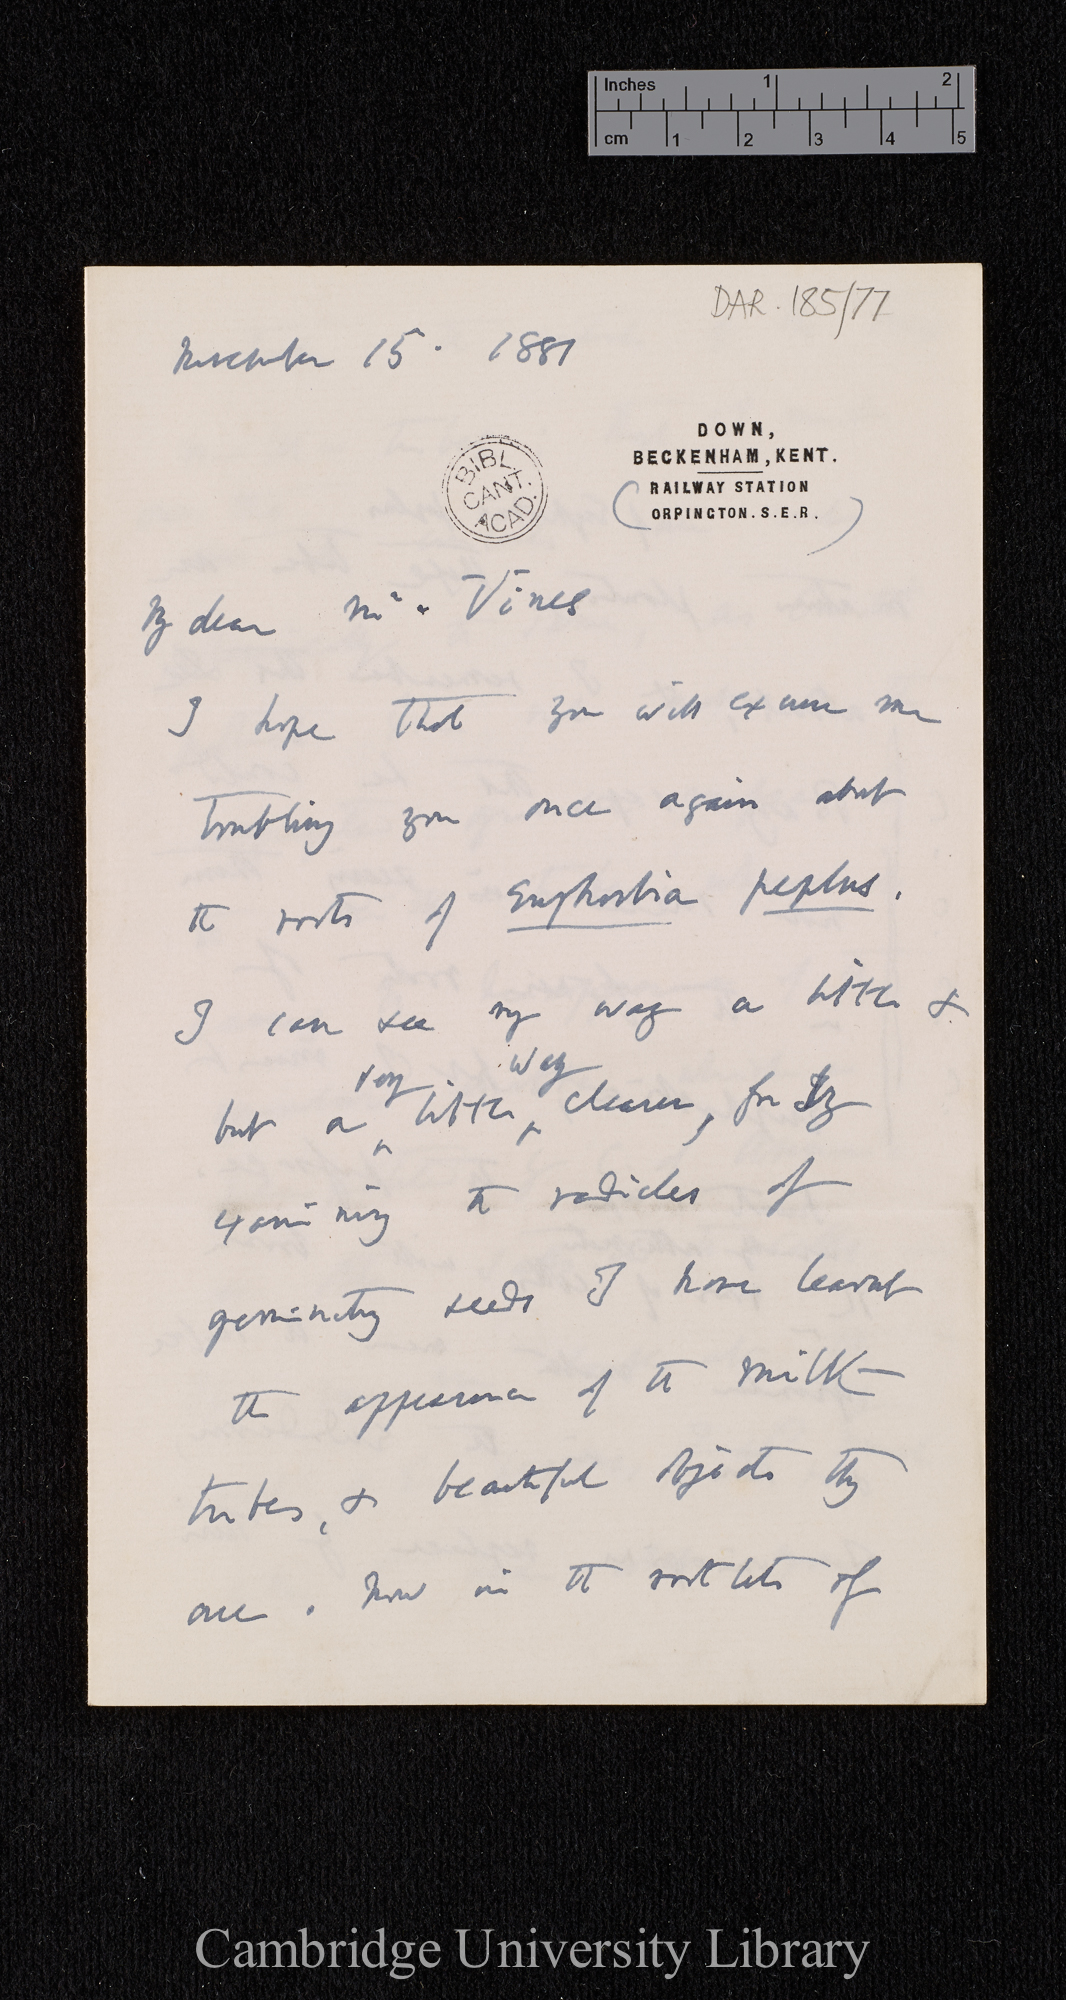 Inches 1 2
cm 1 2 3 4 5
DAR. 185/77
November 15. 1881
DOWN,
BECKENHAM, KENT.
RAILWAY STATION
ORPINGTON. S.E.R.
BIBL. CANT. ACAD.
My dear Mr. Vines
I hope that you will excuse me
troubling you once again about
the roots of Euphorbia peplus.
I can see my way a little &
but a very little way clearer, for by
examining the radicles of
germinating seeds I have learnt
the appearance of the milk-
tubes, & beautiful objects they
are. Now in the rootlets of
Cambridge University Library